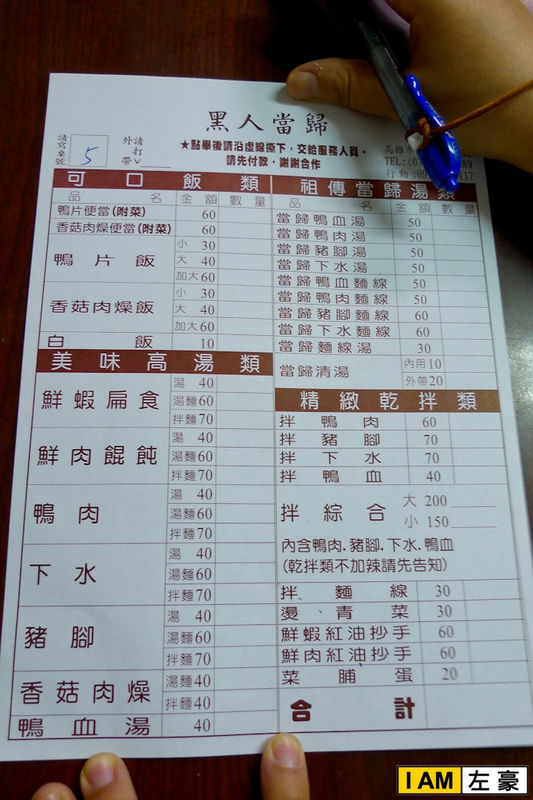 黑人當歸
請寫來號 5
外帶 請打∨
★點單後請沿虛線撕下，交給服務人員，
請先付款，謝謝合作
高雄市
TEL:(07
行動:09 117
可口飯類
品名 金額 數量
鴨片便當(附菜) 60
香菇肉燥便當(附菜) 60
鴨片飯 小 30
大 40
加大 60
香菇肉燥飯 小 30
大 40
加大 60
白飯 10
美味高湯類
鮮蝦扁食 湯 40
湯麵 60
拌麵 70
鮮肉餛飩 湯 40
湯麵 60
拌麵 70
鴨肉 湯 40
湯麵 60
拌麵 70
下水 湯 40
湯麵 60
拌麵 70
豬腳 湯 40
湯麵 60
拌麵 70
香菇肉燥 湯麵 40
拌麵 40
鴨血湯 40
祖傳當歸湯類
品名 金額 數量
當歸鴨血湯 50
當歸鴨肉湯 50
當歸豬腳湯 50
當歸下水湯 50
當歸鴨血麵線 50
當歸鴨肉麵線 50
當歸豬腳麵線 60
當歸下水麵線 60
當歸麵線湯 30
當歸清湯 內用 10
外帶 20
精緻乾拌類
拌鴨肉 60
拌豬腳 70
拌下水 70
拌鴨血 40
拌綜合 大 200
小 150
內含鴨肉.豬腳.下水.鴨血
(乾拌類不加辣請先告知)
拌麵線 30
燙青菜 30
鮮蝦紅油抄手 60
鮮肉紅油抄手 60
菜脯蛋 20
合計
I AM 左豪